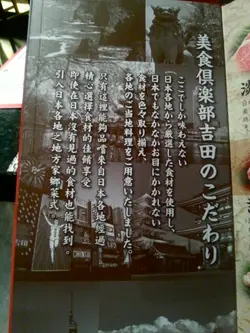 美食倶楽部吉田のこだわり
ここでしか味わえない
日本各地から厳選した食材を使用し、
日本でもなかなかお目にかかれない
食材を色々取り揃え、
各地のご当地料理をご用意いたしました。
只有這裡能夠品嘗來自日本各地經過
精心選擇食材的佳餚享受
即使在日本沒有見過的食材也能找到。
引入日本各地之地方家鄉菜式。